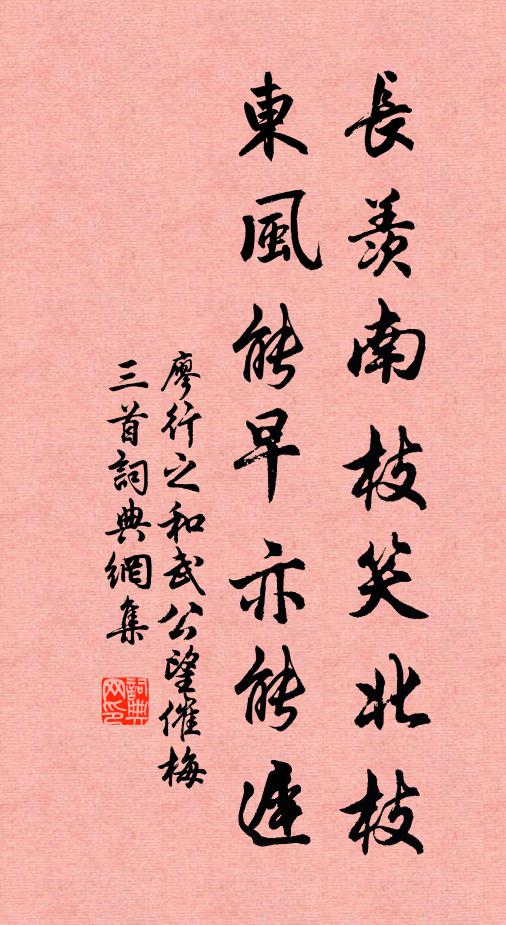 長羨南枝笑北枝
東風能早亦能遲
廖行之和武公望催梅
三首詞典網集
詞典網印